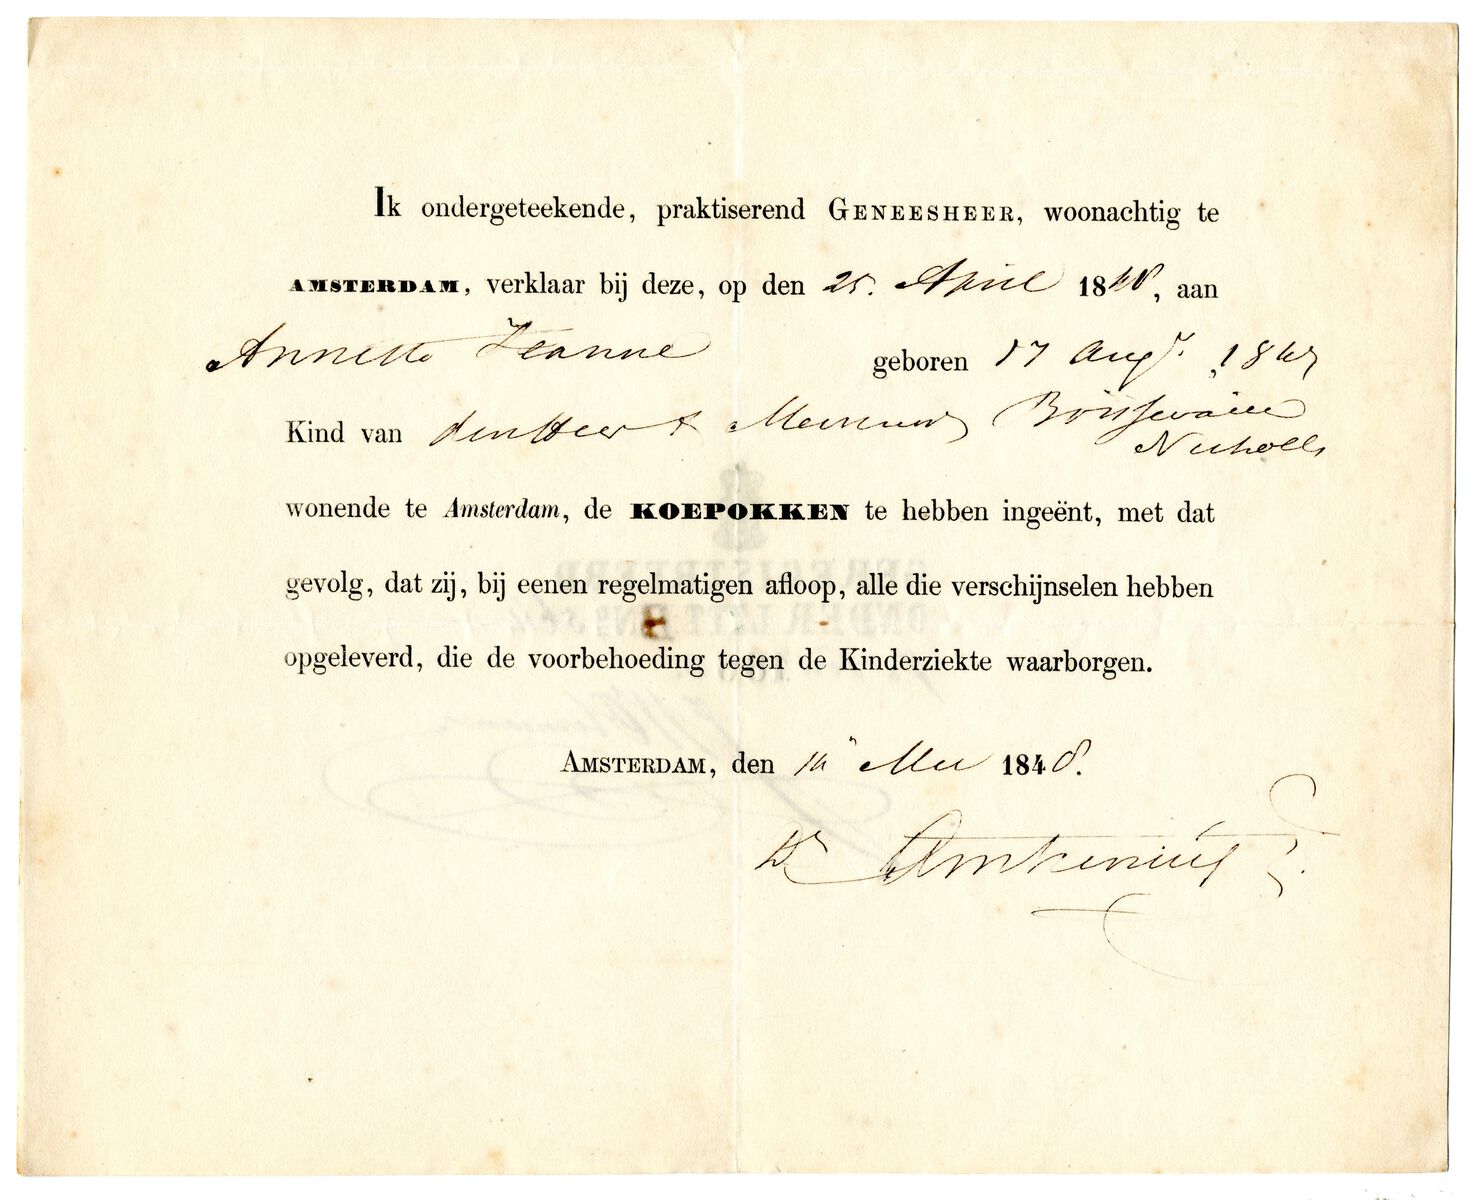 Ik ondergeteekende, praktiserend GENEESHEER, woonachtig te
AMSTERDAM, verklaar bij deze, op den 25. April 1848, aan
Annette Jeanne geboren 17 Augs. 1847
Kind van den Heer & Mevrouw Boissevain
Nicholls
wonende te Amsterdam, de KOEPOKKEN te hebben ingeënt, met dat
gevolg, dat zij, bij eenen regelmatigen afloop, alle die verschijnselen hebben
opgeleverd, die de voorbehoeding tegen de Kinderziekte waarborgen.
AMSTERDAM, den Mei 1848.
Dr